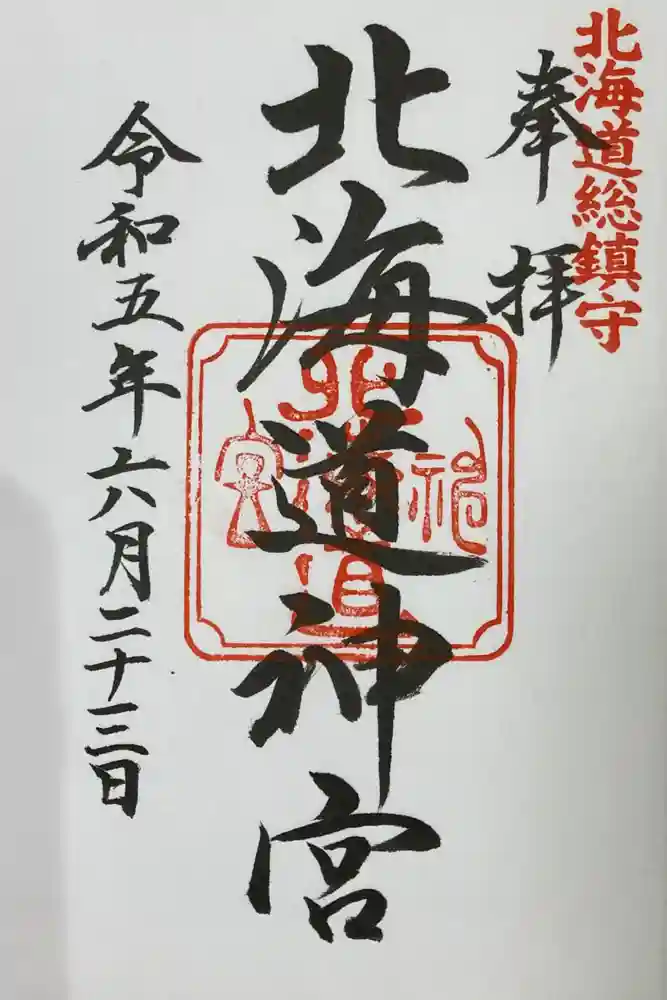 北海道総鎮守
奉拝
北海道神宮
北海道神宮
令和五年六月二十三日